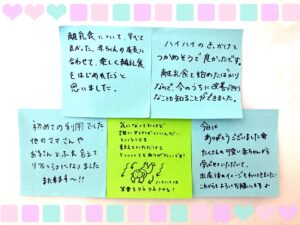 離乳食について、すべて
良かった。赤ちゃんの成長に
合わせて、楽しく離乳食
をはじめれたらと
思いました。
ハイハイのきっかけを
つかめそうで良かったです。
離乳食も始めたばかり
なので、今のうちに改善できそう
なことも知ることができました。
初めての利用でした
他のママさんや
お子さんとふれ合えて
リフレッシュになりました
また来ます〜!!
気になってたけど
誰に
とってもありがたいです!
今日は
ありがとうございました
たくさんの可愛い赤ちゃんから
学ばせていただいて、
出産後のイメージもわいてきました
これからもよろしくお願いします